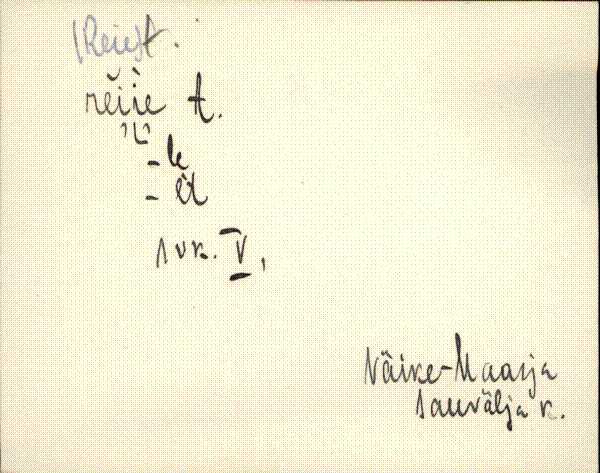 (Reie) t.
rèiie t.
-le
-et
svk. V,
Väike-Maarja
Sauvälja k.